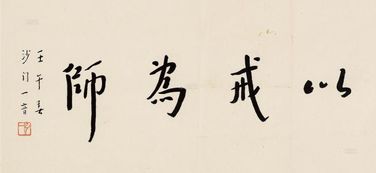 以戒為師
壬午春
沙門一音